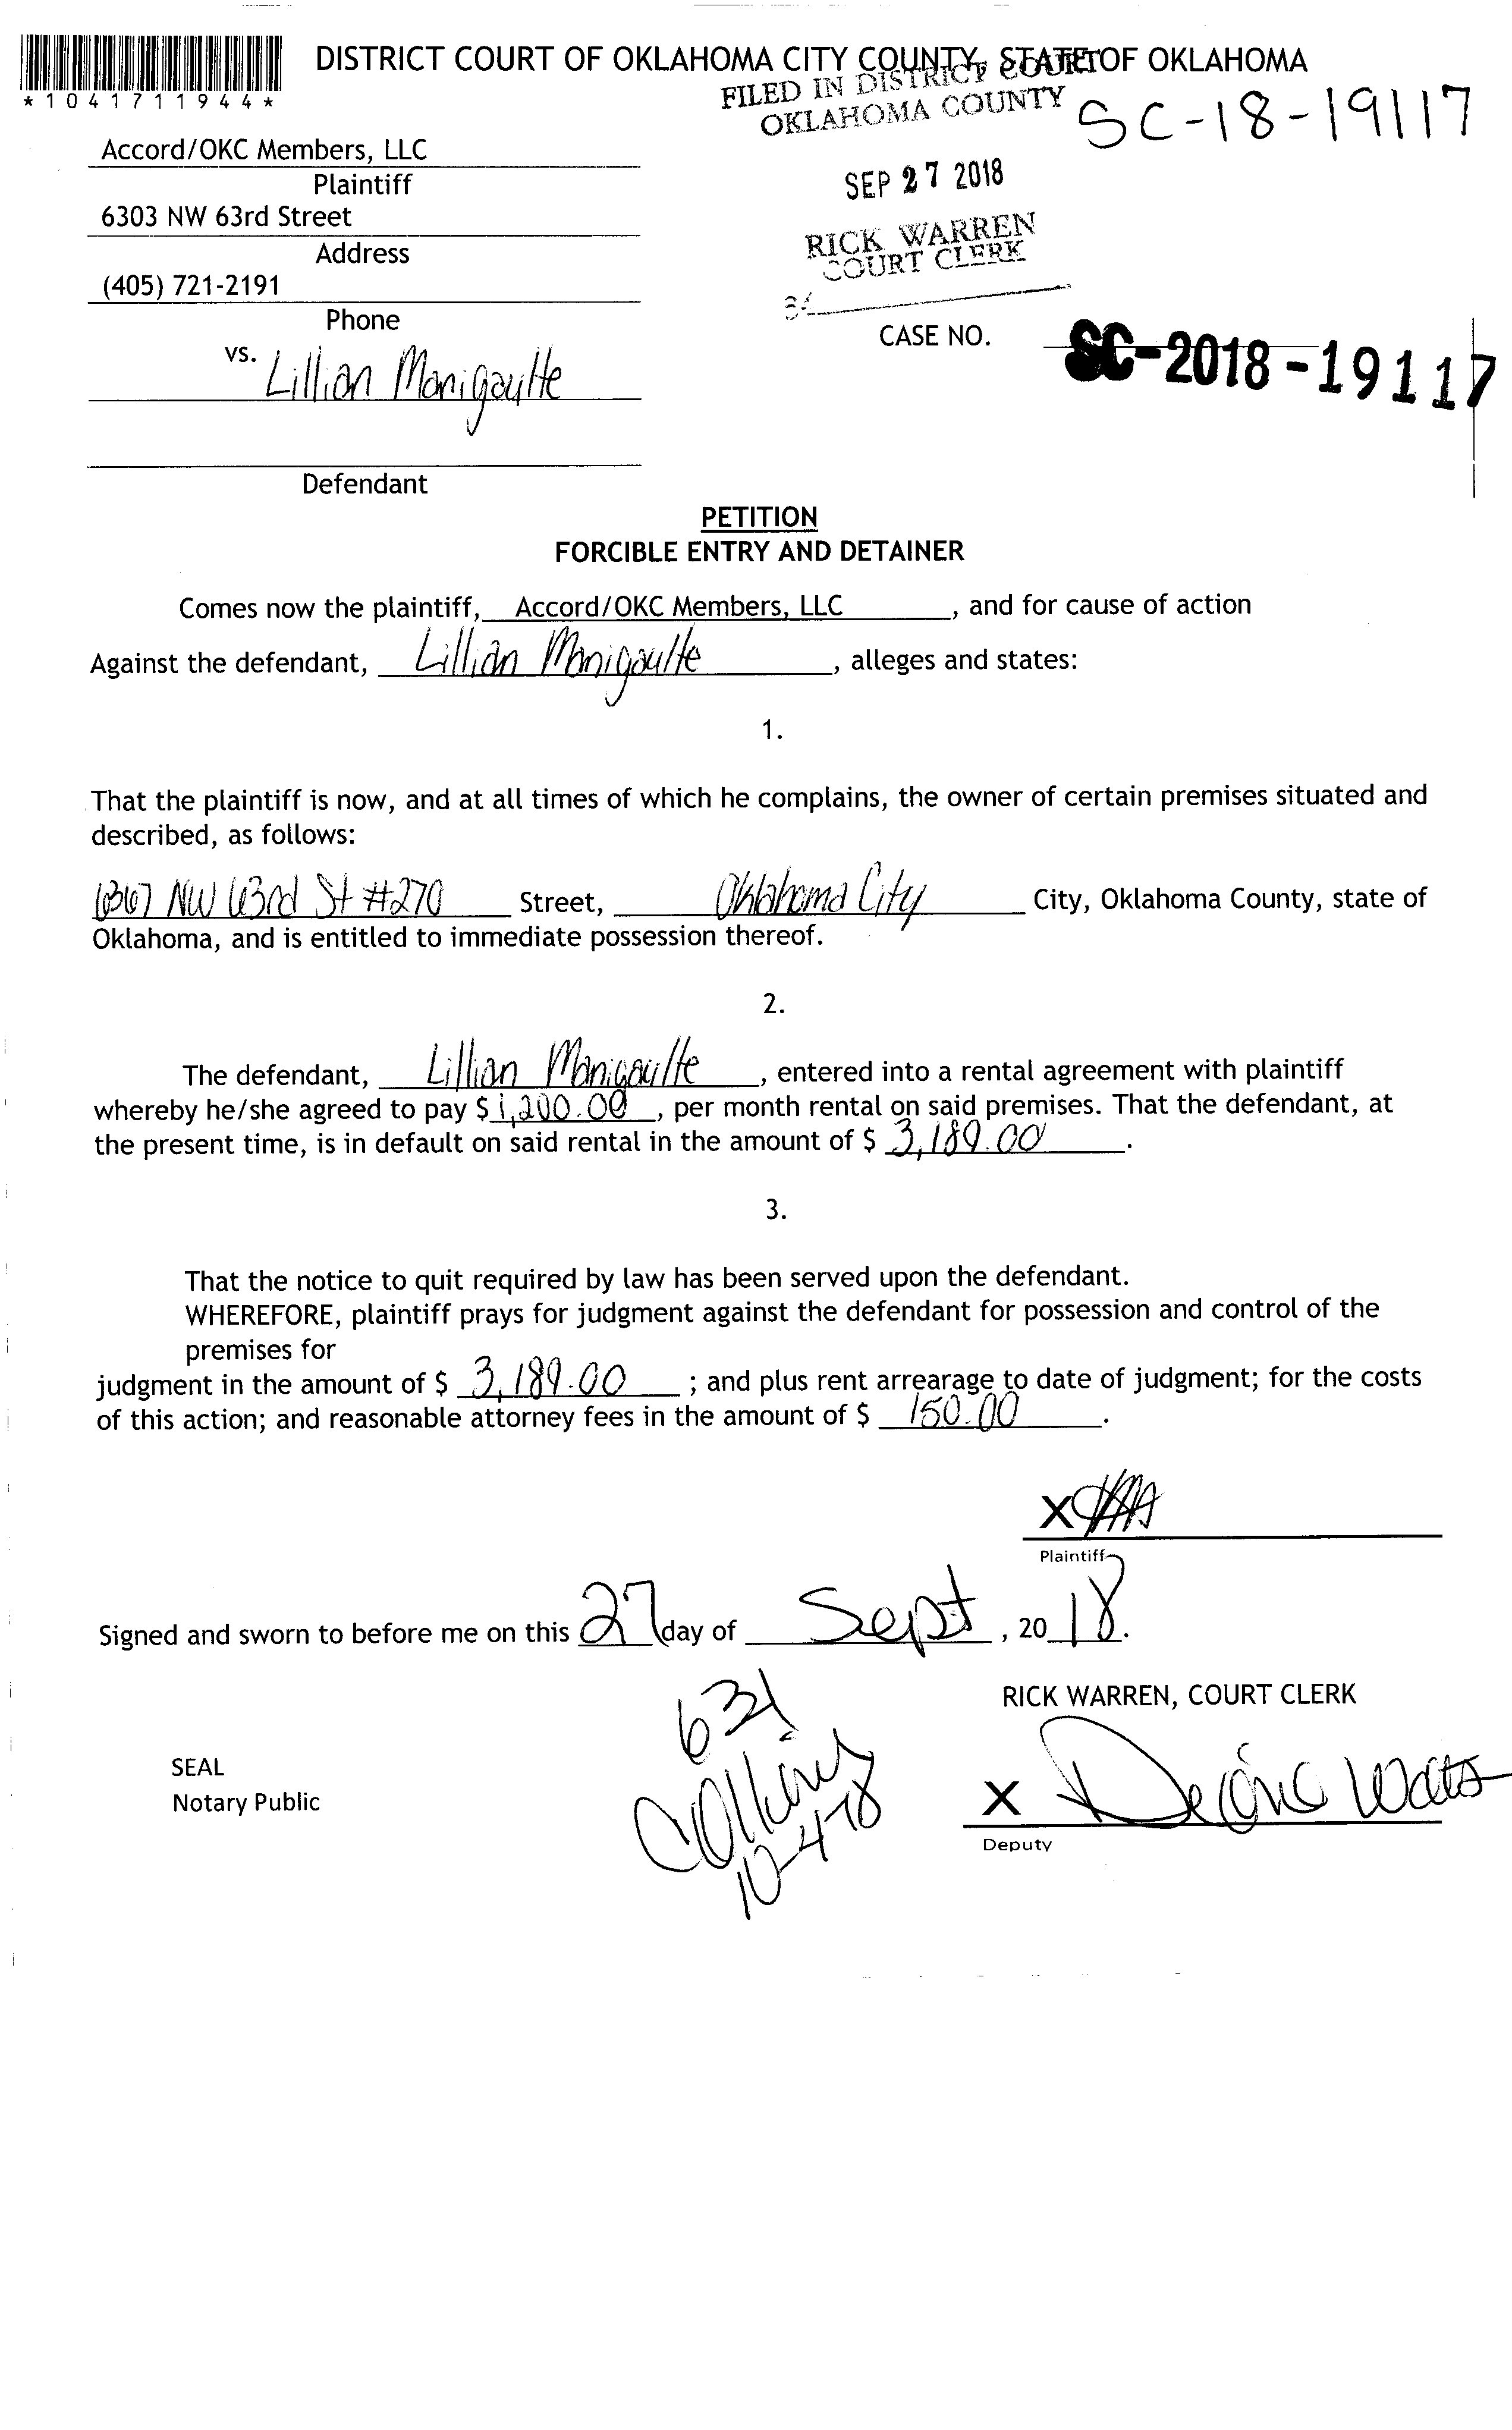 DISTRICT COURT OF OKLAHOMA CITY COUNTY, STATE OF OKLAHOMA
*1041711944*
FILED IN DISTRICT COURT
OKLAHOMA COUNTY
SC-18-19117
Accord/OKC Members, LLC
Plaintiff
SEP 27 2018
6303 NW 63rd Street
Address
RICK WARREN
COURT CLERK
(405) 721-2191
Phone
CASE NO. SC-2018-19117
vs. Lillian Manigaulte
Defendant
PETITION
FORCIBLE ENTRY AND DETAINER
Comes now the plaintiff, Accord/OKC Members, LLC, and for cause of action
Against the defendant, Lillian Manigaulte, alleges and states:
1.
That the plaintiff is now, and at all times of which he complains, the owner of certain premises situated and
described, as follows:
NW 63rd St #270 Street, Oklahoma City City, Oklahoma County, state of
Oklahoma, and is entitled to immediate possession thereof.
2.
The defendant, Lillian Manigaulte, entered into a rental agreement with plaintiff
whereby he/she agreed to pay $ 1,200.00, per month rental on said premises. That the defendant, at
the present time, is in default on said rental in the amount of $ 3,189.00.
3.
That the notice to quit required by law has been served upon the defendant.
WHEREFORE, plaintiff prays for judgment against the defendant for possession and control of the
premises for
judgment in the amount of $ 3,189.00 ; and plus rent arrearage to date of judgment; for the costs
of this action; and reasonable attorney fees in the amount of $ 150.00.
X
Plaintiff
Signed and sworn to before me on this 27 day of Sept, 2018.
631
RICK WARREN, COURT CLERK
SEAL
Notary Public
Collins
X
Deputy